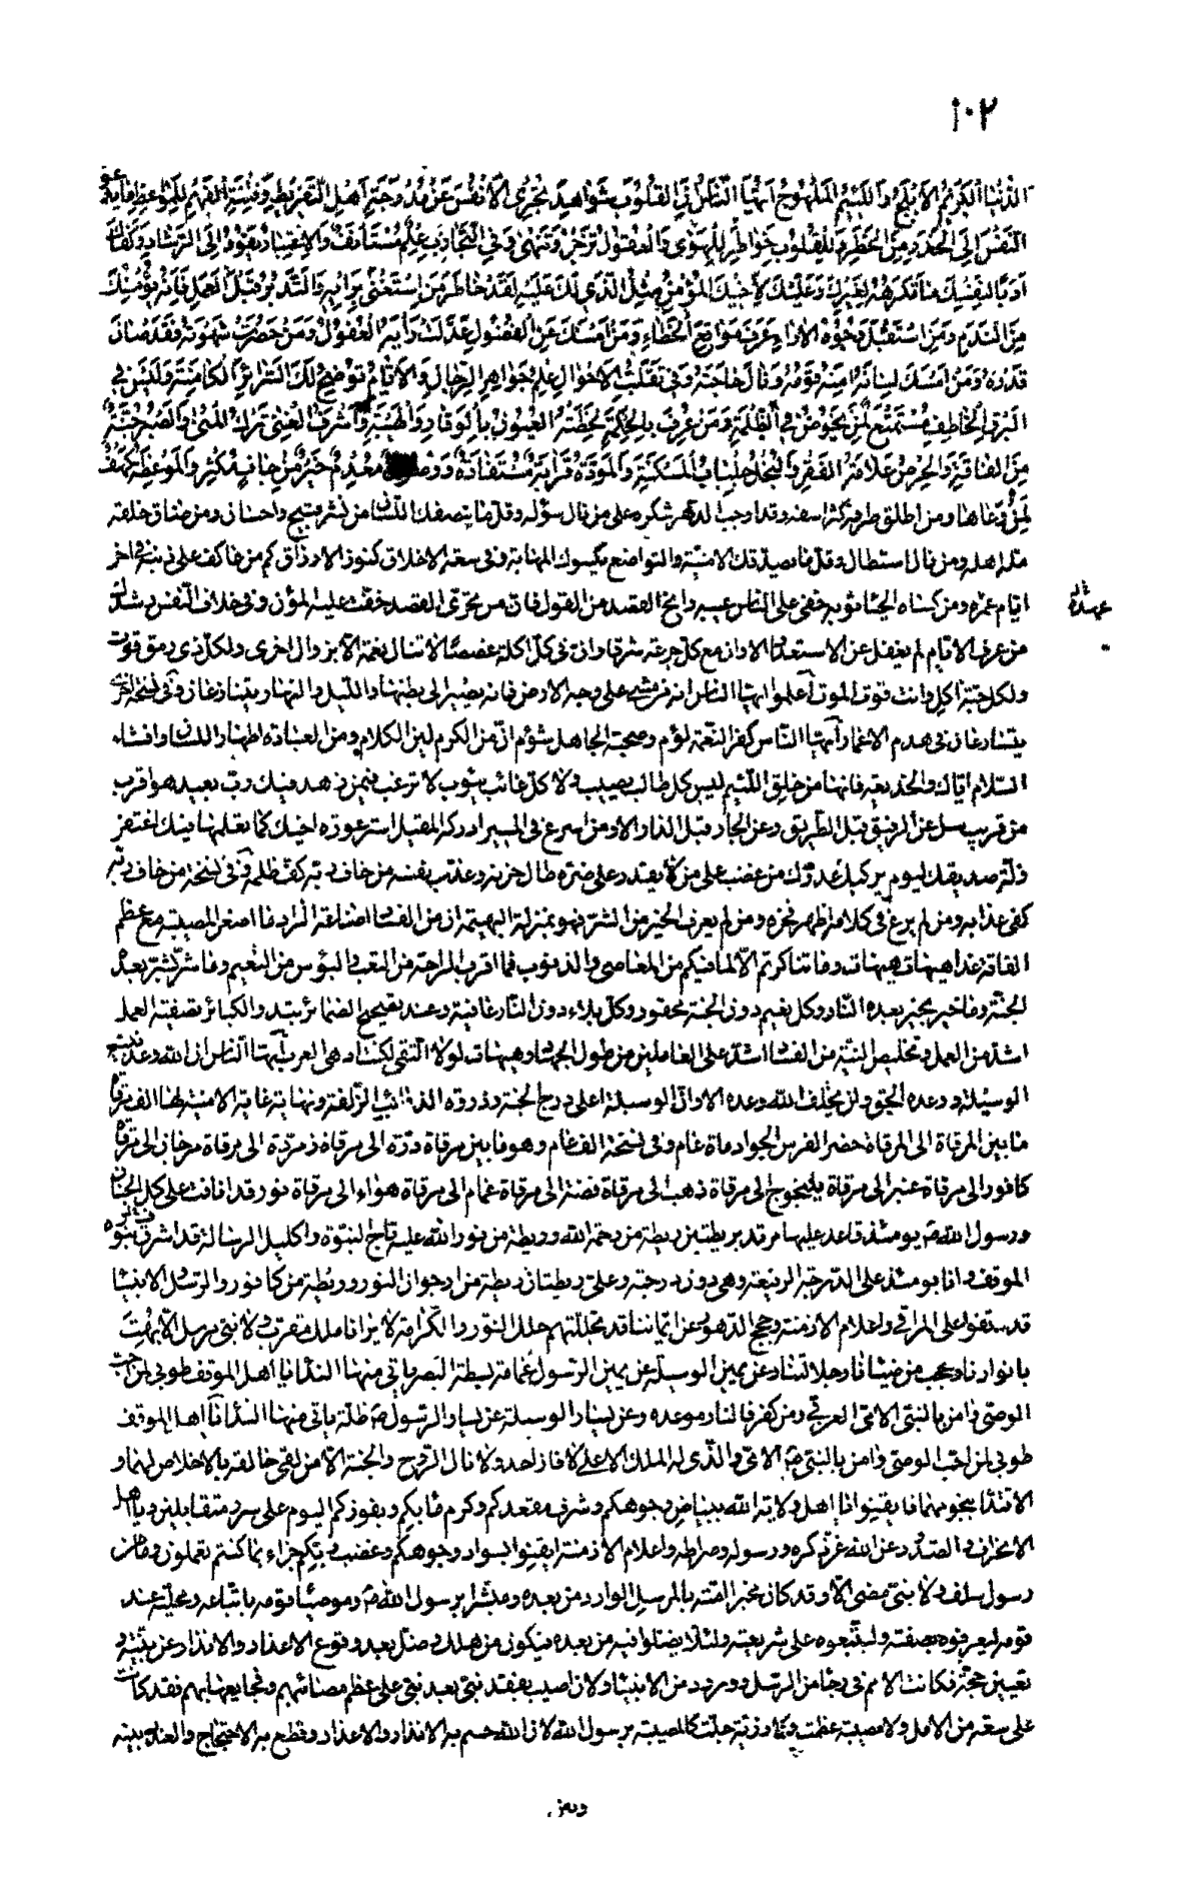 ١٠٢
الدنيا الكريم الأبلج واللئيم الملهوج أيها الناس إن في القلوب شواهد تجرى الأنفس عن مدرجة أهل التفريط وفطنة الفهم للمواعظ ما يدعو
النفس إلى الحذر من الخطر وللقلوب خواطر للهوى والعقول تزجر وتنهى وفي التجارب علم مستأنف والاعتبار يقود إلى الرشاد وكفاك
أدبا لنفسك ما تكرهه لغيرك وعليك لأخيك المؤمن مثل الذي لك عليه لقد خاطر من استغنى برأيه والتدبر قبل العمل فإنه يؤمنك
من الندم ومن استقبل وجوه الآراء عرف مواقع الخطاء ومن أمسك عن الفضول عدلت رأيه العقول ومن حصن شهوته فقد صان
قدره ومن أمسك لسانه أمنه قومه ونال حاجته وفي تقلب الأحوال علم جواهر الرجال والأيام توضح لك السرائر الكامنة وليس في
البرق الخاطف مستمتع لمن يخوض في الظلمة ومن عرف بالحكمة لحظته العيون بالوقار والهيبة وأشرف الغنى ترك المنى والصبر جنة
من الفاقة والحرص علامة الفقر والبخل جلباب المسكنة والمودة قرابة مستفادة ووصول معدم خير من جاف مكثر والموعظة كهف
لمن وعاها ومن أطلق طرفه كثر أسفه وقد أوجب الدهر شكره على من نال سؤله وقل ما ينصفك اللسان من نشر قبيح واحسان ومن ضاق خلقه
مله أهله ومن نال استطال وقل ما تصدقك الأمنية والتواضع يكسوك المهابة وفي سعة الأخلاق كنوز الأرزاق كم من عاكف على ذنبه في آخر
أيام عمره ومن كساه الحياء ثوبه خفي على الناس عيبه وانح القصد من القول فان من تحرى القصد خفت عليه المؤن وفي خلاف النفس رشدك
من عرف الأيام لم يغفل عن الاستعداد الا وان مع كل جرعة شرقا وان في كل أكلة غصصا لا تنال نعمة الا بزوال أخرى ولكل ذي رمق قوت
ولكل حبة آكل وأنت قوت الموت اعلموا أيها الناس انه من مشى على وجه الأرض فانه يصير إلى بطنها والليل والنهار يتنازعان وفي نسخة أخرى
يتسارعان في هدم الأعمار أيها الناس كفر النعمة لؤم وصحبة الجاهل شؤم ان من الكرم لين الكلام ومن العبادة اظهار اللسان وافشاء
السلام إياك والخديعة فانها من خلق اللئيم ليس كل طالب يصيب ولا كل غائب يئوب لا ترغب فيمن زهد فيك رب بعيد هو أقرب
من قريب سل عن الرفيق قبل الطريق وعن الجار قبل الدار الا ومن أسرع في المسير أدركه المقيل استر عورة أخيك كما تعلمها فيك اغتفر
زلة صديقك ليوم يركبك عدوك من غضب على من لا يقدر على ضره طال حزنه وعذب نفسه من خاف ربه كف ظلمه وفي نسخة من خاف ربه
كفى عذابه ومن لم يرع في كلامه أظهر فخره ومن لم يعرف الخير من الشر فهو بمنزلة البهيمة ان من الفساد اضاعة الزاد ما أصغر المصيبة مع عظم
الفاقة غدا هيهات هيهات وما تناكرتم الا لما فيكم من المعاصي والذنوب فما أقرب الراحة من التعب والبؤس من النعيم وما شر بشر بعده
الجنة وما خير بخير بعده النار وكل نعيم دون الجنة محقور وكل بلاء دون النار عافية وعند تصحيح الضمائر تبدو الكبائر تصفية العمل
أشد من العمل وتخليص النية من الفساد أشد على العاملين من طول الجهاد وهيهات لولا التقى لكنت أدهى العرب أيها الناس ان الله وعد نبيه
الوسيلة ووعده الحق ولن يخلف الله وعده الا وان الوسيلة أعلى درج الجنة وذروة ذوائب الزلفة ونهاية غاية الأمنية لها ألف مرقاة
ما بين المرقاة إلى المرقاة حضر الفرس الجواد مائة عام وفي نسخة ألف عام وهو ما بين مرقاة درة إلى مرقاة زمردة إلى مرقاة مرجان إلى مرقاة
كافور إلى مرقاة عنبر إلى مرقاة يلنجوج إلى مرقاة ذهب إلى مرقاة فضة إلى مرقاة غمام إلى مرقاة هواء إلى مرقاة نور قد أنافت على كل الجنان
ورسول الله ص يومئذ قاعد عليها مرتد بريطتين ريطة من رحمة الله وريطة من نور الله عليه تاج النبوة واكليل الرسالة قد أشرق بنوره
الموقف وأنا يومئذ على الدرجة الرفيعة وهي دون درجته وعلي ريطتان ريطة من ارجوان النور وريطة من كافور والرسل والأنبياء
قد وقفوا على المراقي وأعلام الأزمنة وحجج الدهور عن أيماننا قد تجللتهم حلل النور والكرامة لا يرانا ملك مقرب ولا نبي مرسل الا بهت
بأنوارنا وعجب من ضيائنا وجلالتنا وعن يمين الوسيلة عن يمين الرسول غمامة بسطة البصر يأتي منها النداء يا أهل الموقف طوبى لمن أحب
الوصي وآمن بالنبي الأمي العربي ومن كفر فالنار موعده وعن يسار الوسيلة عن يسار الرسول ص ظلة يأتي منها النداء يا أهل الموقف
طوبى لمن أحب الوصي وآمن بالنبي ص الأمي والذي له الملك الأعلى لا فاز أحد ولا نال الروح والجنة الا من لقي خالقه بالاخلاص لهما و
الاقتداء بنجومهما فأيقنوا يا أهل ولاية الله ببياض وجوهكم وشرف مقعدكم وكرم مآبكم وبفوزكم اليوم على سرر متقابلين ويا أهل
الانحراف والصدود عن الله عز ذكره ورسوله وصراطه وأعلام الأزمنة أيقنوا بسواد وجوهكم وغضب ربكم جزاء بما كنتم تعملون وما من
رسول سلف ولا نبي مضى الا وقد كان مخبرا أمته بالمرسل الوارد من بعده ومبشرا برسول الله ص وموصيا قومه باتباعه ومحليه عند
قومه ليعرفوه بصفته وليتبعوه على شريعته ولئلا يضلوا فيه من بعده فيكون من هلك وضل بعد وقوع الاعذار والانذار عن بينة و
تعيين حجة فكانت الأمم في رجاء من الرسل وورود من الأنبياء ولان أصيبت بفقد نبي بعد نبي على عظم مصائبهم وفجايعها بهم فقد كانت
على سعة من الأمل ولا مصيبة عظمت ولا رزية جلت كالمصيبة برسول الله لان الله حسم به الانذار والاعذار وقطع به الاحتجاج والعذر بينه
وبين